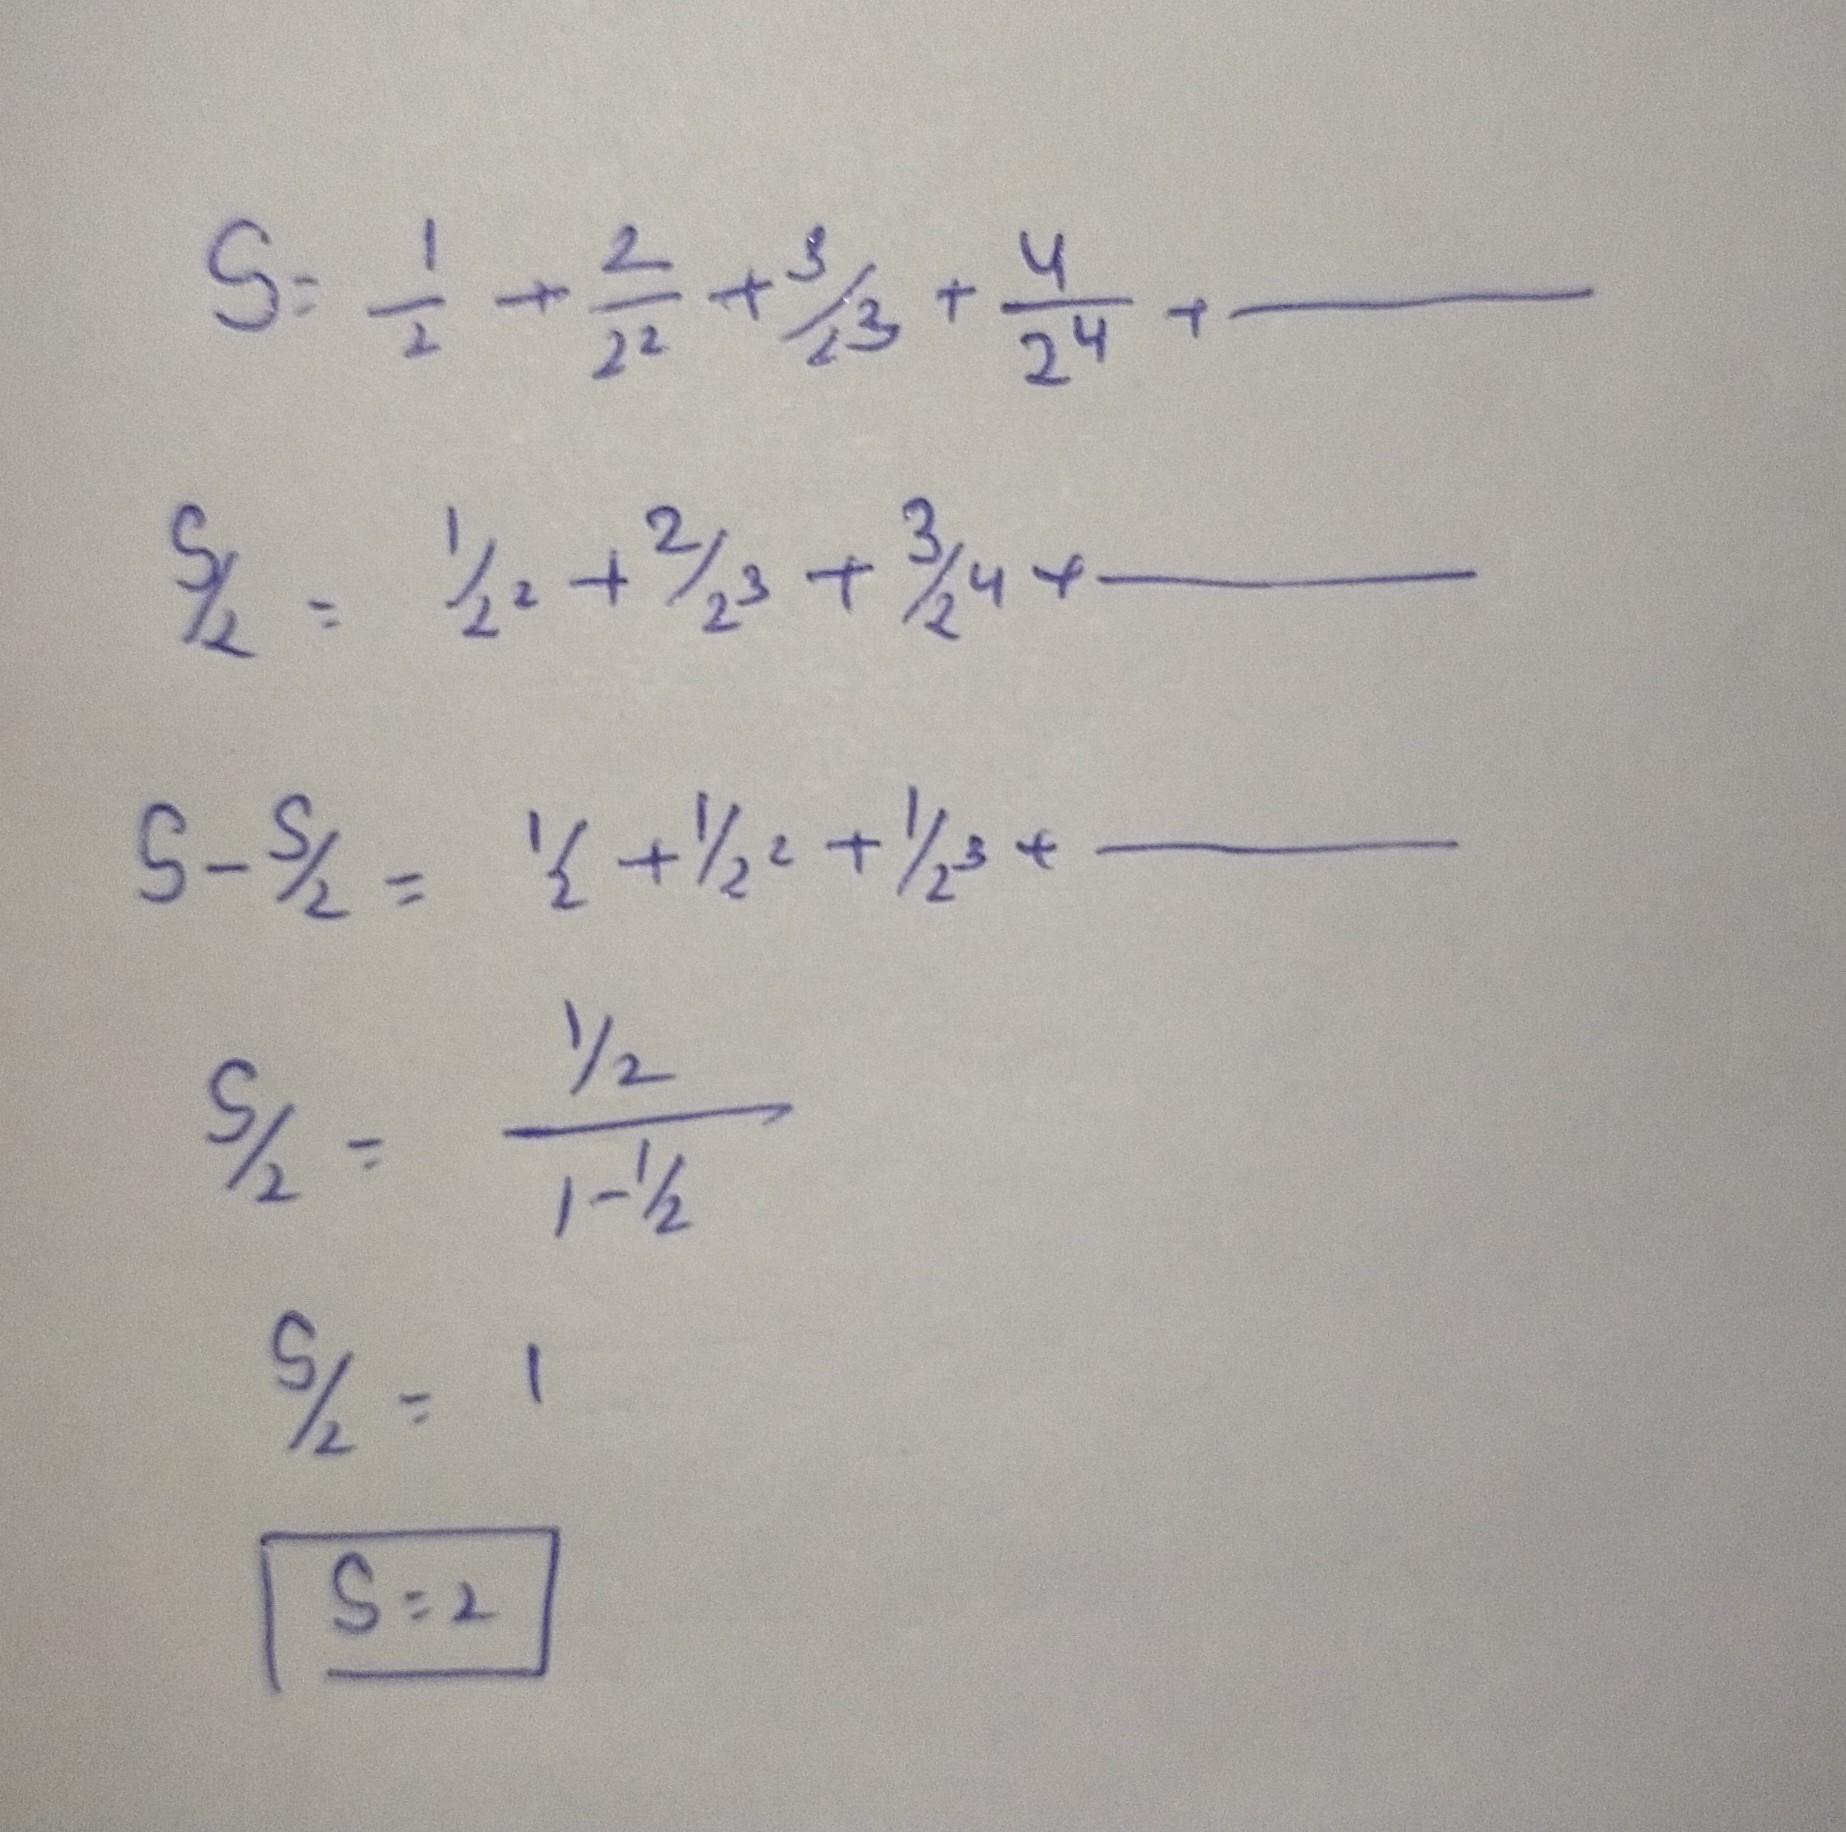 S = 1/2 + 2/2² + 3/2³ + 4/2⁴ + ———
S/2 = 1/2² + 2/2³ + 3/2⁴ + ———
S - S/2 = 1/2 + 1/2² + 1/2³ + ———
S/2 = (1/2)/(1 - 1/2)
S/2 = 1
S = 2